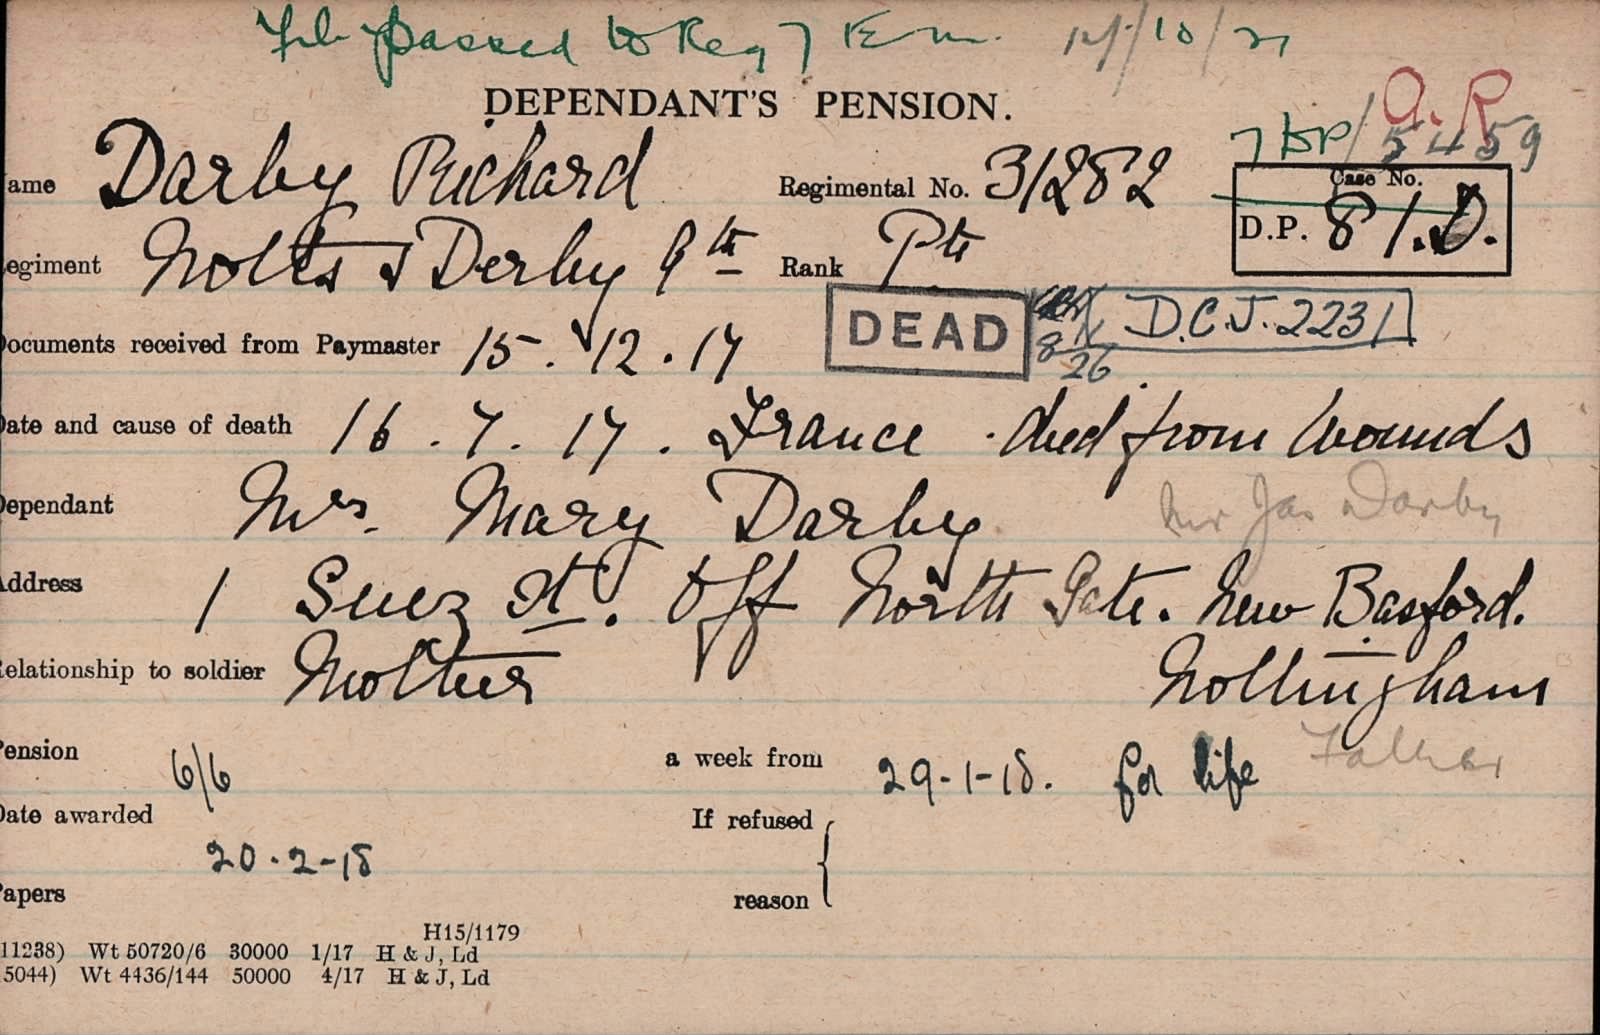 File passed to Reg 7 E.M. 14/10/21
DEPENDANT'S PENSION.
A.R
7 DP/5459
ame Darby Richard Regimental No. 31282
Case No.
D.P. 81.D.
egiment Notts & Derby 9th Rank Pte
DEAD 8/26 D.C.J. 2231
ocuments received from Paymaster 15.12.17
ate and cause of death 16.7.17. France died from wounds
ependant Mrs. Mary Darby Mr Jas Darby
ddress 1 Suez St. Off North Gate. New Basford.
elationship to soldier Mother Nottingham
ension 6/6 a week from 29-1-18. for life Father
ate awarded 20.2-18 If refused
apers reason
H15/1179
11238) Wt 50720/6 30000 1/17 H & J, Ld
5044) Wt 4436/144 50000 4/17 H & J, Ld